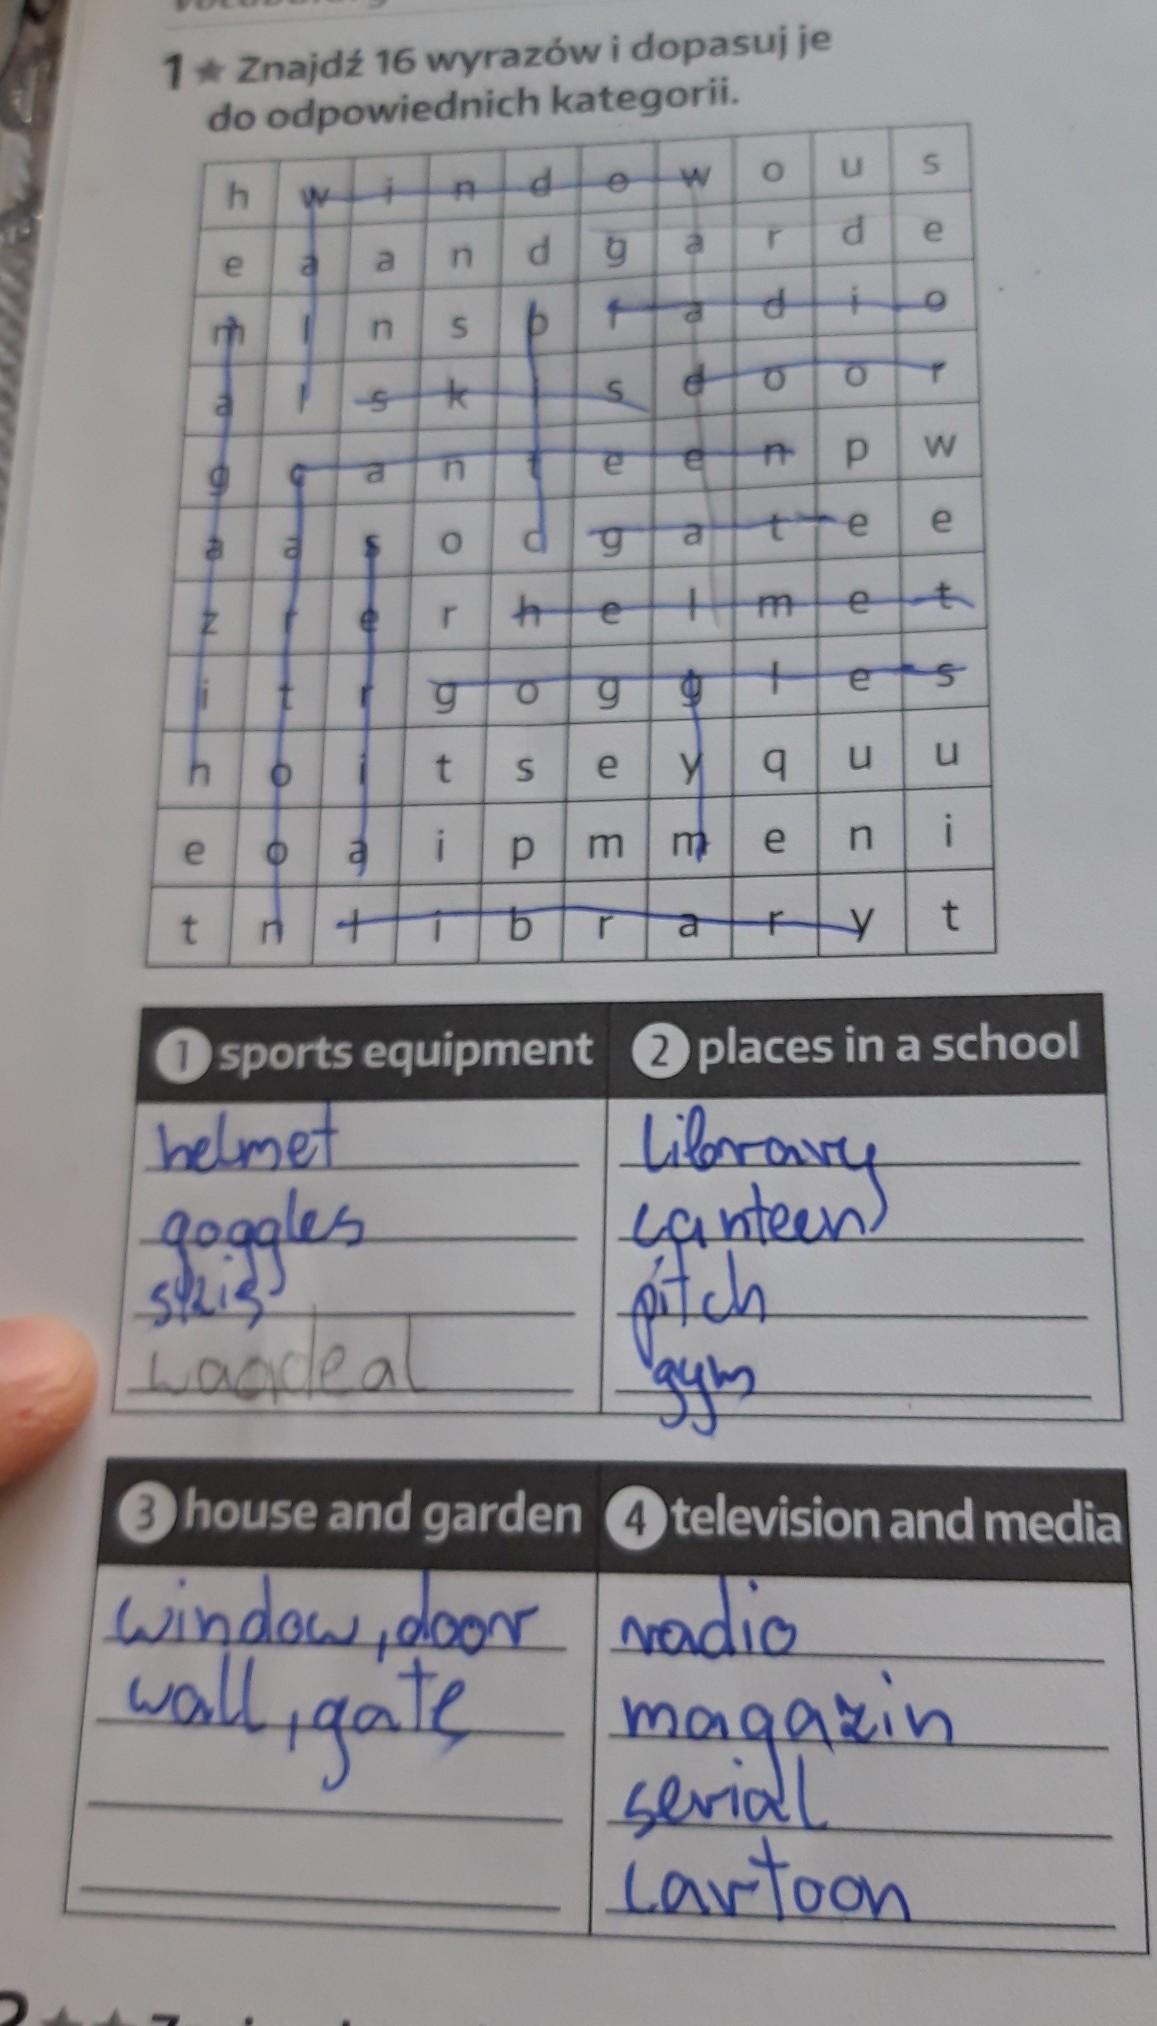 1 ★ Znajdź 16 wyrazów i dopasuj je
do odpowiednich kategorii.
h w i n d o w o u s
e a a n d g a r d e
m l n s p r a d i o
a l s k i s d o o r
g c a n t e e n p w
a a s o c g a t e e
z r e r h e l m e t
i t r g o g g l e s
n o i t s e y q u u
e o a i p m m e n i
t n l i b r a r y t
1 sports equipment
helmet
goggles
skis
waadeal
2 places in a school
library
canteen
pitch
gym
3 house and garden
window, door
wall, gate
4 television and media
radio
magazin
serial
cartoon